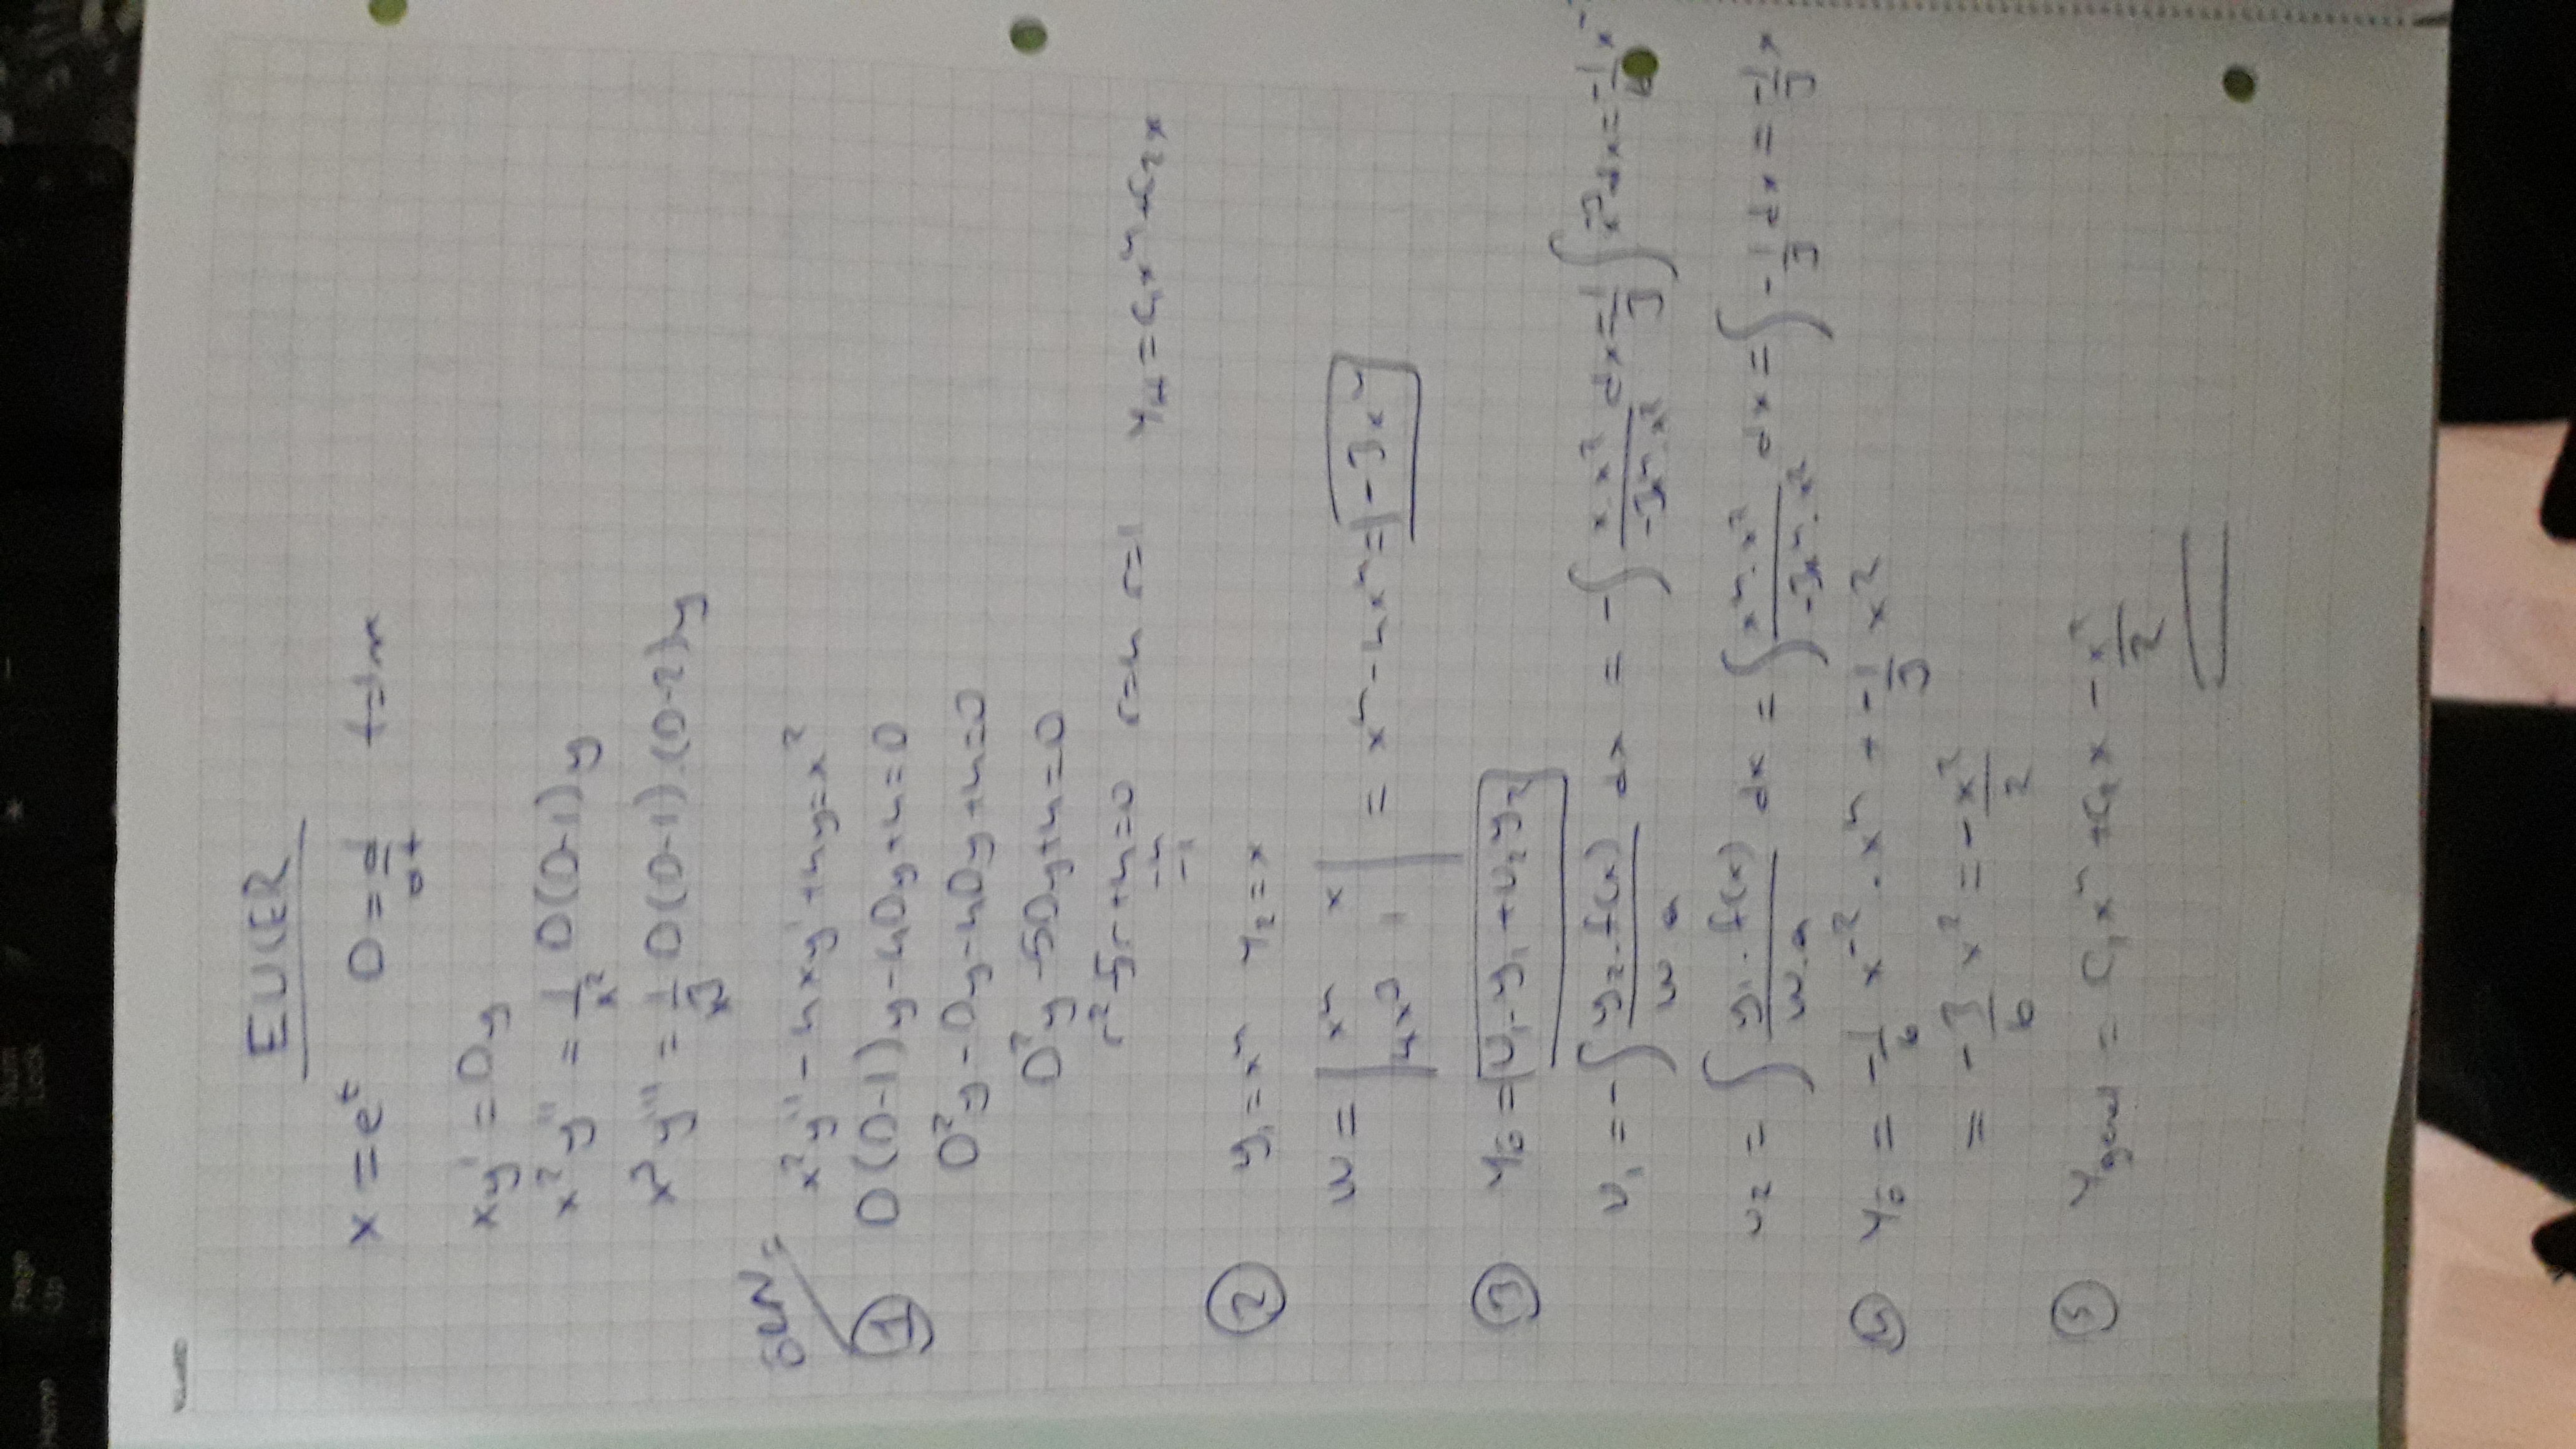 Home
Page Up
Num Lock
EULER
x = e^t D = d/dt t = lnx
xy' = Dy
x²y'' = 1/x² D(D-1)y
x³y''' = 1/x³ D(D-1).(D-2)y
ÖRN =
x²y'' - 4xy' + 4y = x²
① D(D-1)y - 4Dy + 4 = 0
D²y - Dy - 4Dy + 4 = 0
D²y - 5Dy + 4 = 0
r² - 5r + 4 = 0 r = 4 r = 1 Y_H = C₁x⁴ + C₂x
-4
-1
② y₁ = x⁴ Y₂ = x
W = | x⁴ x | = x⁴ - 4x⁴ = -3x⁴
4x³ 1
③ Y_ö = U₁.y₁ + U₂y₂
U₁ = -∫ y₂.f(x) / W.a dx = -∫ x.x² / -3x⁴.x² dx = 1/3 ∫ x⁻³ dx = -1/6 x⁻
U₂ = ∫ y₁.f(x) / W.a dx = ∫ x⁴.x² / -3x⁴.x² dx = ∫ -1/3 dx = -1/3 x
④ Y_ö = -1/6 x⁻² . x⁴ + -1/3 x²
= -3/6 x² = -x²/2
⑤ Y_genel = C₁x⁴ + C₂x - x²/2